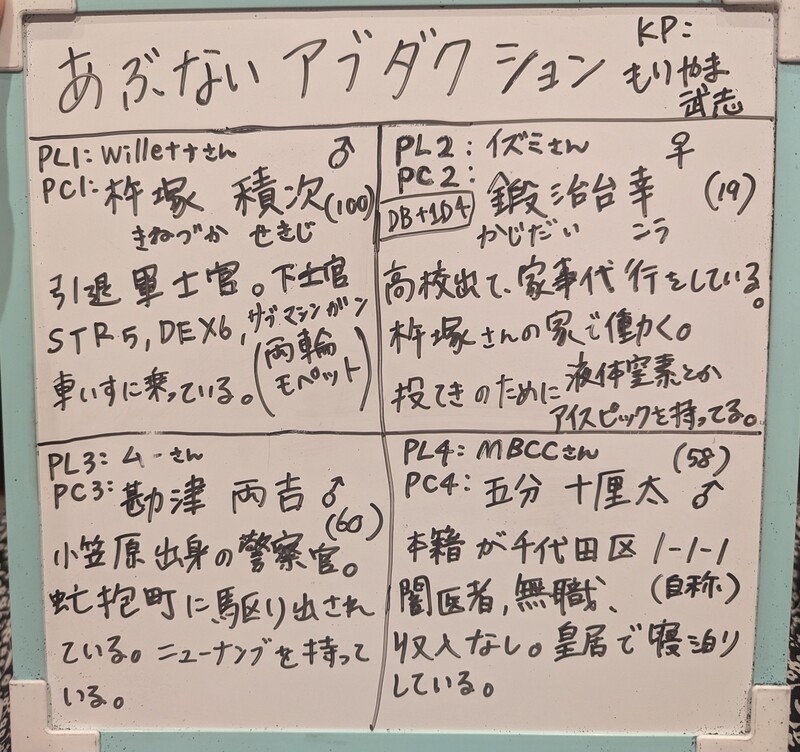 あぶないアブダクション
KP:
もりやま
武志
PL1: Willettさん ♂
PC1: 杵塚 積次 (100)
きねづか せきじ
引退軍士官。下士官
STR5, DEX6, サブマシンガン
車いすに乗っている。(両輪
モペット)
PL2: イズミさん ♀
PC2: 鍛治台 幸 (19)
DB+1D4
かじだい こう
高校出て、家事代行をしている。
杵塚さんの家で働く。
投てきのために液体窒素とか
アイスピックを持ってる。
PL3: ムーさん
PC3: 勘津 両吉 ♂
(60)
小笠原出身の警察官。
虻抱町に駆り出され
ている。ニューナンブを持って
いる。
PL4: MBCCさん (58)
PC4: 五分 十厘太 ♂
本籍が千代田区 1-1-1
闇医者, 無職、(自称)
収入なし。皇居で寝泊り
している。